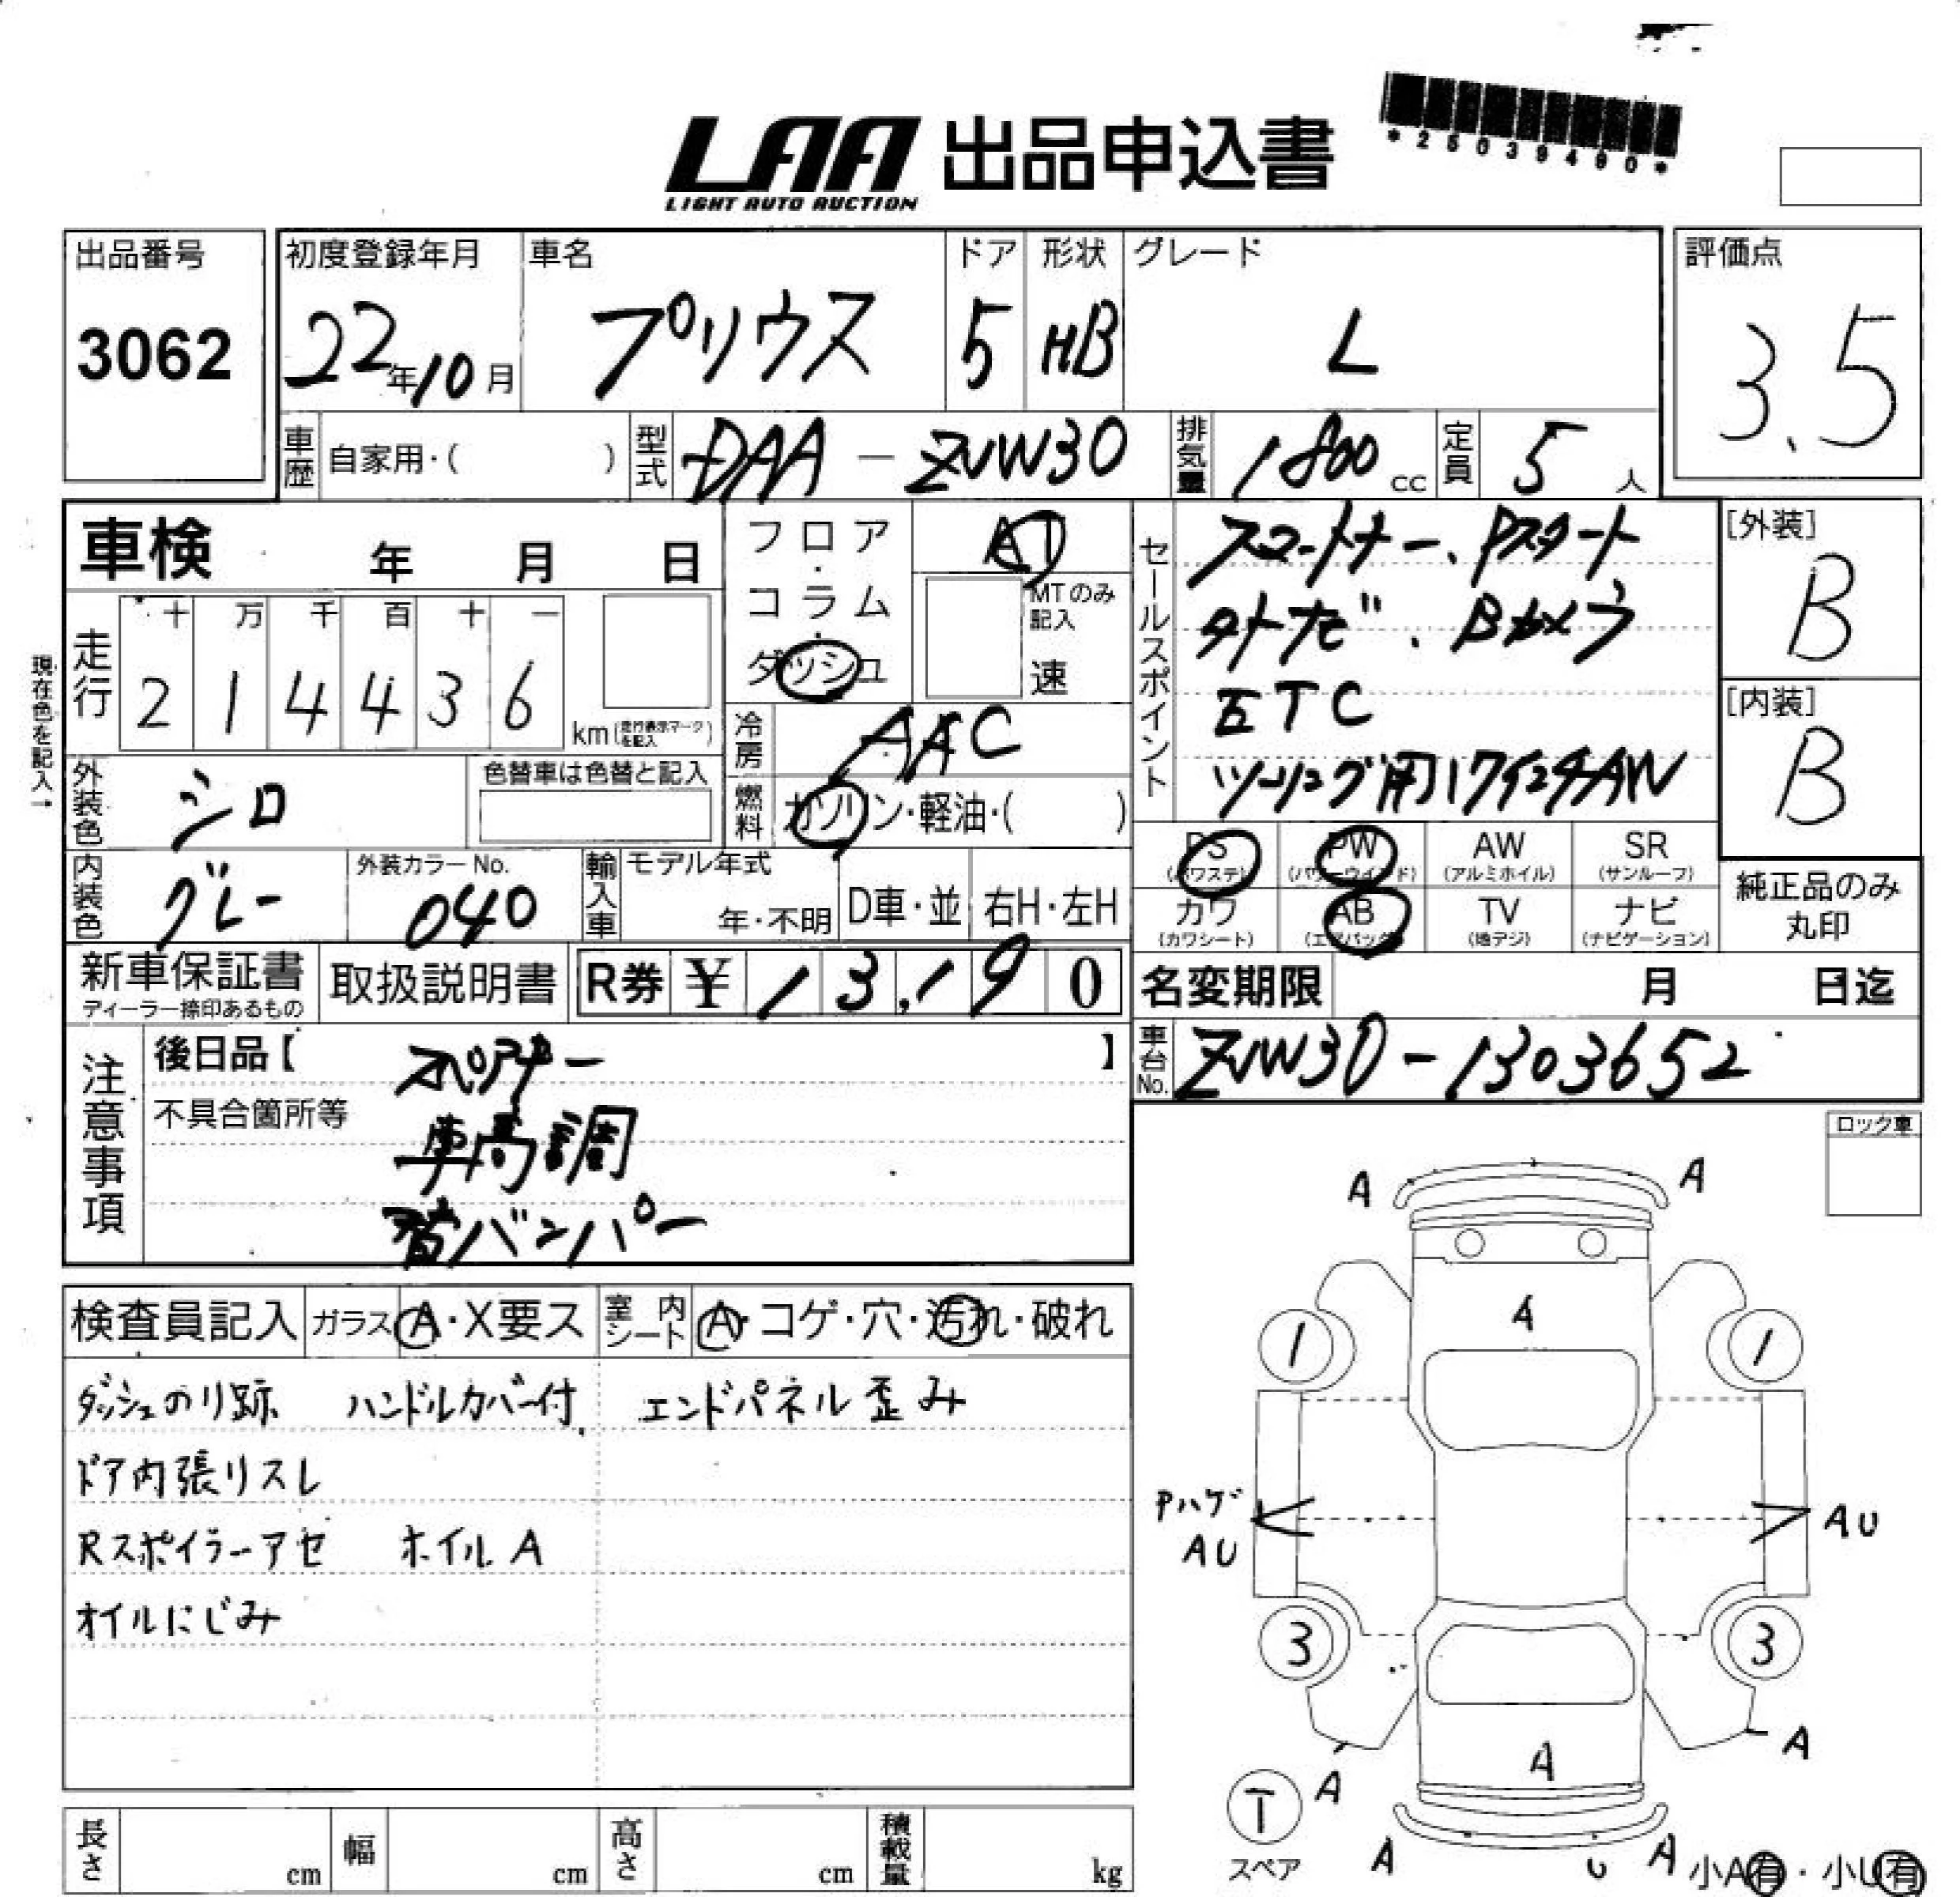 LAA 出品申込書
LIGHT AUTO AUCTION
*25039490*
出品番号
3062
初度登録年月
22年10月
車名
プリウス
ドア
5
形状
HB
グレード
L
評価点
3.5
車歴 自家用・( )
型式 DAA-ZVW30
排気量 1800 cc
定員 5 人
車検 年 月 日
フロア・コラム・ダッシュ
AT
MTのみ記入
速
セールスポイント
スマートキー、Pスタート
外ナビ、Bカメラ
ETC
ツーリング用17インチAW
[外装]
B
[内装]
B
現在色を記入→
走行
十 万 千 百 十 一
2 1 4 4 3 6
km(走行表示マークを記入)
冷房 AAC
燃料 ガソリン・軽油・( )
外装色 シロ
色替車は色替と記入
内装色 グレー
外装カラーNo.
040
輸入車
モデル年式
年・不明
D車・並
右H・左H
PS (パワステ)
PW (パワーウインド)
AW (アルミホイル)
SR (サンルーフ)
カワ (カワシート)
AB (エアバッグ)
TV (地デジ)
ナビ (ナビゲーション)
純正品のみ
丸印
新車保証書
ディーラー捺印あるもの
取扱説明書
R券 ¥ 13,190
名変期限 月 日迄
車台No. ZVW30-1303652
注意事項
後日品【 】
不具合箇所等
車高調
社外バンパー
ロック車
検査員記入
ガラス A・X要ス
室内シート A・コゲ・穴・汚れ・破れ
ダッシュのり跡 ハンドルカバー付 エンドパネル歪み
ドア内張りスレ
Rスポイラーアセ ホイルA
オイルにじみ
A A
A
1 1
Pハゲ
AU AU
3 3
A A
A
T
スペア
A U A
小A有・小U有
長さ cm
幅 cm
高さ cm
積載量 kg